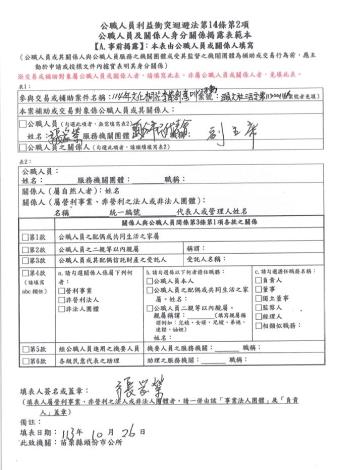 公職人員利益衝突迴避法第14條第2項
公職人員及關係人身分關係揭露表範本
【A.事前揭露】：本表由公職人員或關係人填寫
（公職人員或其關係人與公職人員服務之機關團體或受其監督之機關團體為補助或交易行為前，應主動於申請或投標文件內據實表明其身分關係）
※交易或補助對象屬公職人員或關係人者，請填寫此表。非屬公職人員或關係人者，免填此表。
表1：
參與交易或補助案件名稱：114年文化 案號：
本案補助或交易對象係公職人員或其關係人
□公職人員（勾選此項者，無需填寫表2）
姓名：張家榮 服務機關團體： 職稱：副主席
□公職人員之關係人（勾選此項者，請繼續填寫表2）
表2：
公職人員：
姓名： 服務機關團體： 職稱：
關係人（屬自然人者）：姓名
關係人（屬營利事業、非營利之法人或非法人團體）：
名稱 統一編號 代表人或管理人姓名
關係人與公職人員間係第3條第1項各款之關係
□第1款 公職人員之配偶或共同生活之家屬
□第2款 公職人員之二親等以內親屬 稱謂：
□第3款 公職人員或其配偶信託財產之受託人 受託人名稱：
□第4款（請填寫abc欄位）
a.請勾選關係人係屬下列何者：
□營利事業
□非營利法人
□非法人團體
b.請勾選係以下何者擔任職務：
□公職人員本人
□公職人員之配偶或共同生活之家屬。姓名：
□公職人員二親等以內親屬。
親屬稱謂：（填寫親屬稱謂例如：兒媳、女婿、兄嫂、弟媳、連襟、妯娌）
姓名：
c.請勾選擔任職務名稱：
□負責人
□董事
□獨立董事
□監察人
□經理人
□相類似職務：
□第5款 經公職人員進用之機要人員 機要人員之服務機關： 職稱：
□第6款 各級民意代表之助理 助理之服務機關： 職稱：
填表人簽名或蓋章：張家榮
（填表人屬營利事業、非營利之法人或非法人團體者，請一併由該「事業法人團體」及「負責人」蓋章）
備註：
填表日期：113年10月26日
此致機關：苗栗縣頭份市公所